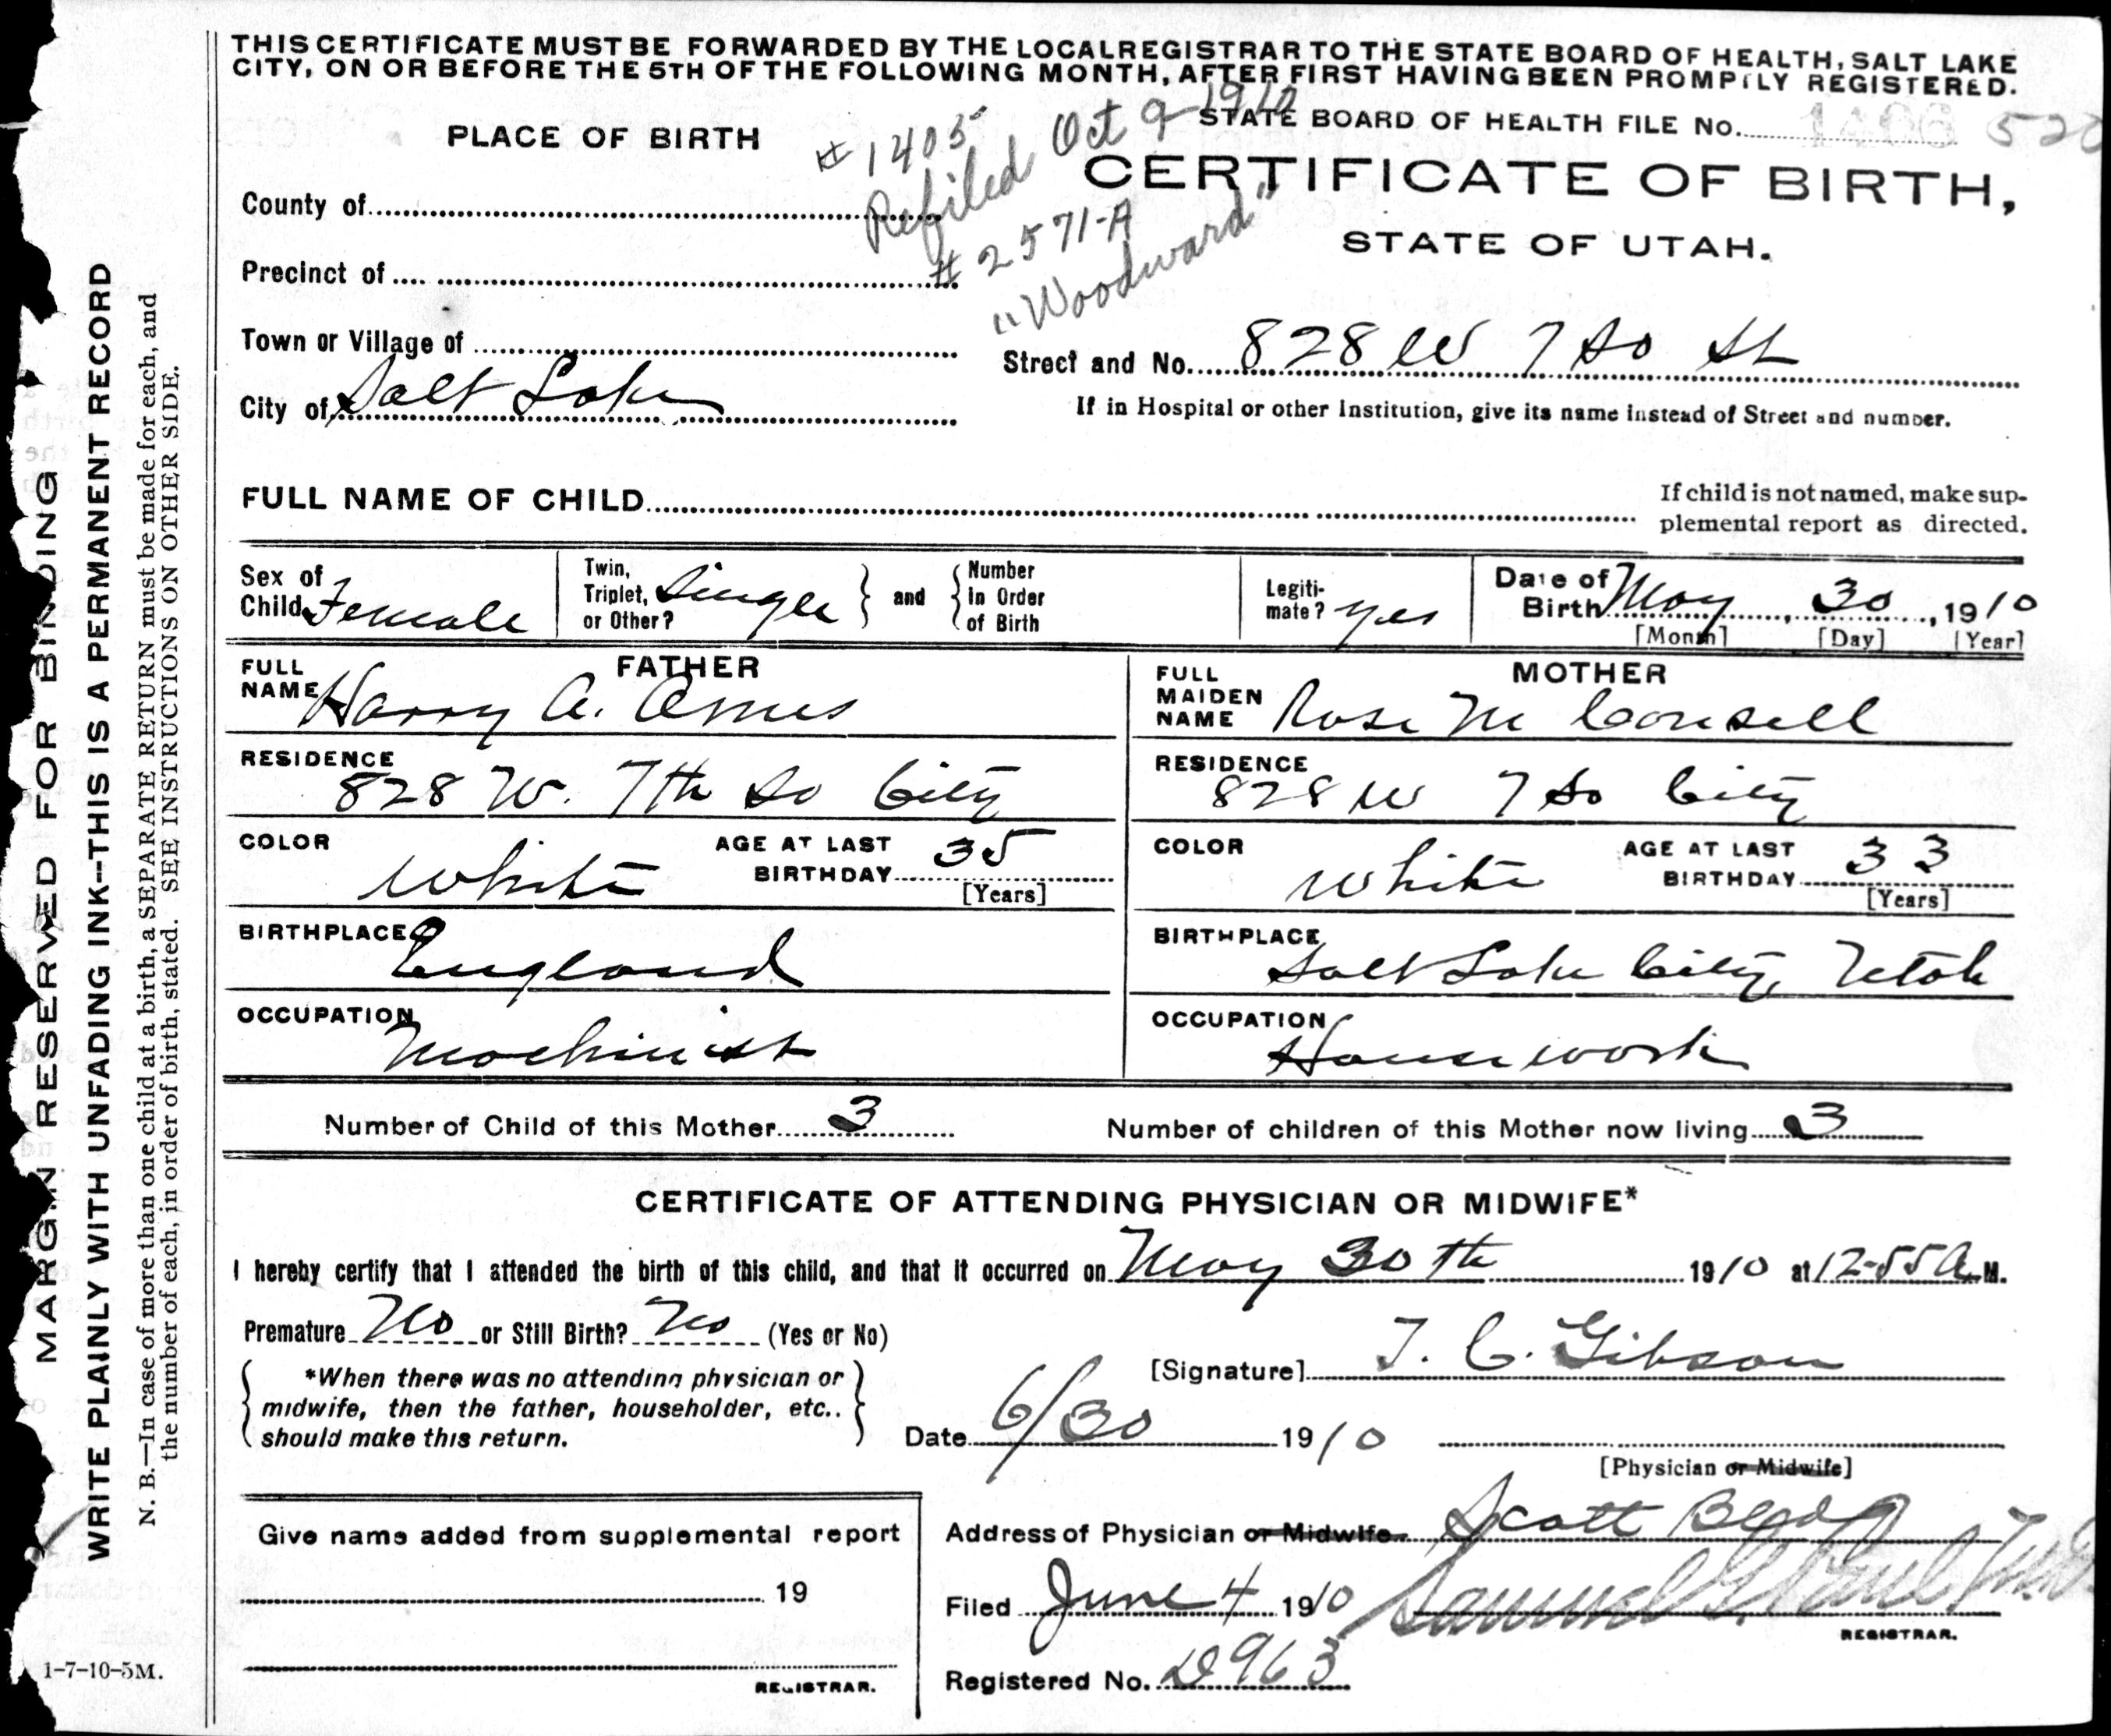 THIS CERTIFICATE MUST BE FORWARDED BY THE LOCAL REGISTRAR TO THE STATE BOARD OF HEALTH, SALT LAKE
CITY, ON OR BEFORE THE 5TH OF THE FOLLOWING MONTH, AFTER FIRST HAVING BEEN PROMPTLY REGISTERED.
STATE BOARD OF HEALTH FILE No. 1406 520
PLACE OF BIRTH
#1405
Refiled Oct 9-1912
#2571-A
"Woodward"
CERTIFICATE OF BIRTH,
STATE OF UTAH.
County of
Precinct of
Town or Village of
City of Salt Lake
Street and No. 828 W 7 So St
If in Hospital or other Institution, give its name instead of Street and number.
FULL NAME OF CHILD
If child is not named, make sup-
plemental report as directed.
Sex of Child Female
Twin, Triplet, or Other? Single
and
Number In Order of Birth
Legiti-mate? yes
Date of Birth May, 30, 1910
[Month] [Day] [Year]
FATHER
FULL NAME Harry A. Ames
RESIDENCE 828 W. 7th So City
COLOR White AGE AT LAST BIRTHDAY 35 [Years]
BIRTHPLACE England
OCCUPATION Machinist
MOTHER
FULL MAIDEN NAME Rose M
RESIDENCE 828 W 7 So City
COLOR White AGE AT LAST BIRTHDAY 33 [Years]
BIRTHPLACE Salt Lake City, Utah
OCCUPATION Housework
Number of Child of this Mother 3
Number of children of this Mother now living 3
CERTIFICATE OF ATTENDING PHYSICIAN OR MIDWIFE*
I hereby certify that I attended the birth of this child, and that it occurred on May 30th 1910 at 12-55 A. M.
Premature No or Still Birth? No (Yes or No)
*When there was no attending physician or
midwife, then the father, householder, etc..
should make this return.
[Signature] T. C. Gibson
Date 6/30 1910
[Physician or Midwife]
Address of Physician or Midwife Scott Bldg
Filed June 4 1910 Samuel G. Paul
REGISTRAR.
Registered No. D963
Give name added from supplemental report
19
REGISTRAR.
MARGIN RESERVED FOR BINDING
WRITE PLAINLY WITH UNFADING INK--THIS IS A PERMANENT RECORD
N. B.—In case of more than one child at a birth, a SEPARATE RETURN must be made for each, and
the number of each, in order of birth, stated. SEE INSTRUCTIONS ON OTHER SIDE.
1-7-10-5M.